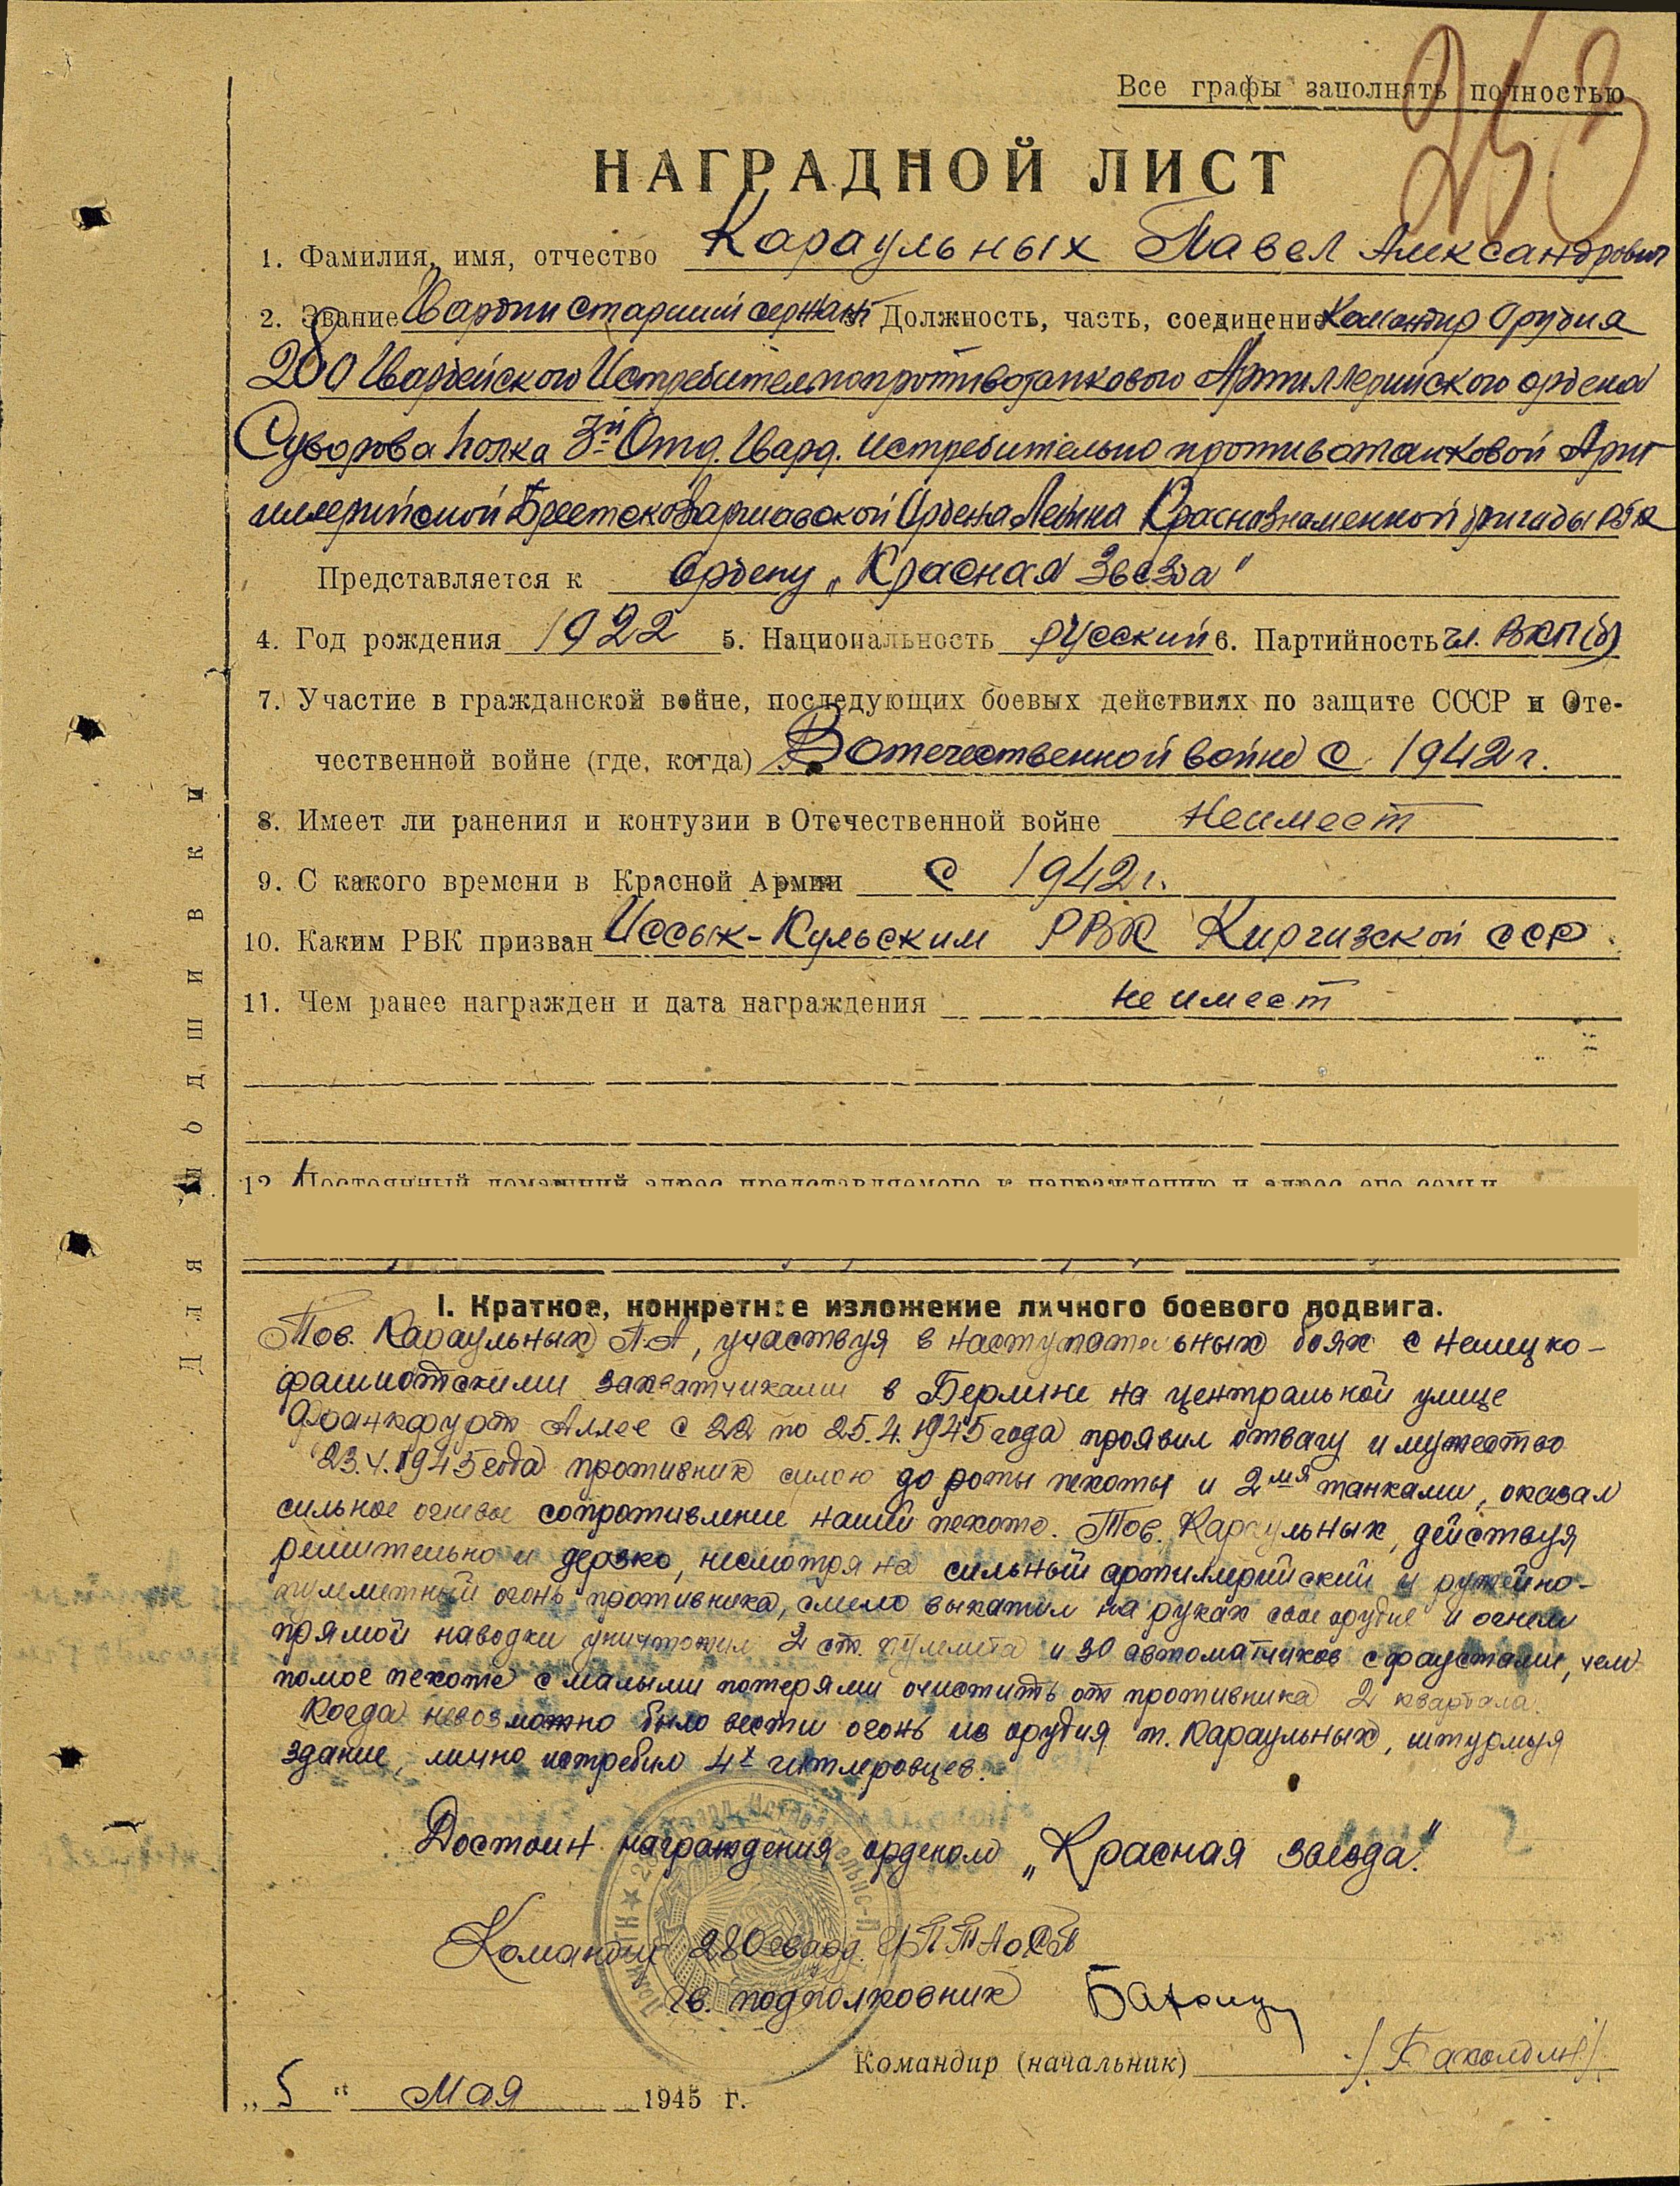 253
Все графы заполнять полностью
НАГРАДНОЙ ЛИСТ
1. Фамилия, имя, отчество Караульных Павел Александрович
2. Звание Гвардии старший сержант 3. Должность, часть, соединение Командир Орудия
280 Гвардейского Истребительнопротивотанкового Артиллерийского ордена
Суворова полка 3й Отд. Гвард. истребительно противотанковой Арт
иллерийской Брестско Варшавской Ордена Ленина Краснознаменной бригады РГК
Представляется к ордену „Красная Звезда"
4. Год рождения 1922 5. Национальность русский 6. Партийность чл. ВКП(б)
7. Участие в гражданской войне, последующих боевых действиях по защите СССР и Оте-
чественной войне (где, когда) В отечественной войне с 1942 г.
8. Имеет ли ранения и контузии в Отечественной войне Не имеет
9. С какого времени в Красной Армии с 1942 г.
10. Каким РВК призван Иссык-Кульским РВК Киргизской ССР.
11. Чем ранее награжден и дата награждения не имеет
12. Постоянный домашний адрес представляемого к награждению и адрес его семьи
Для подшивки
I. Краткое, конкретное изложение личного боевого подвига.
Тов. Караульных П.А, участвуя в наступательных боях с немецко-
фашистскими захватчиками в Берлине на центральной улице
Франкфурт Аллее с 22 по 25.4.1945 года проявил отвагу и мужество
23.4.1945 года противник силою до роты пехоты и 2мя танками, оказал
сильное огневое сопротивление нашей пехоте. Тов. Караульных, действуя
решительно и дерзко, несмотря на сильный артиллерийский и ружейно-
пулеметный огонь противника, смело выкатил на руках свое орудие и огнем
прямой наводки уничтожил 2 ст. пулемета и 30 автоматчиков с фаустами, чем
помог пехоте с малыми потерями очистить от противника 2 квартала.
Когда невозможно было вести огонь из орудия т. Караульных, штурмуя
здание, лично истребил 4х гитлеровцев.
Достоин награждения орденом „Красная звезда."
Командир 280 гвард. ИПТАОСП
гв. подполковник
Командир (начальник) /Бахолдин/
„5" Мая 1945 г.